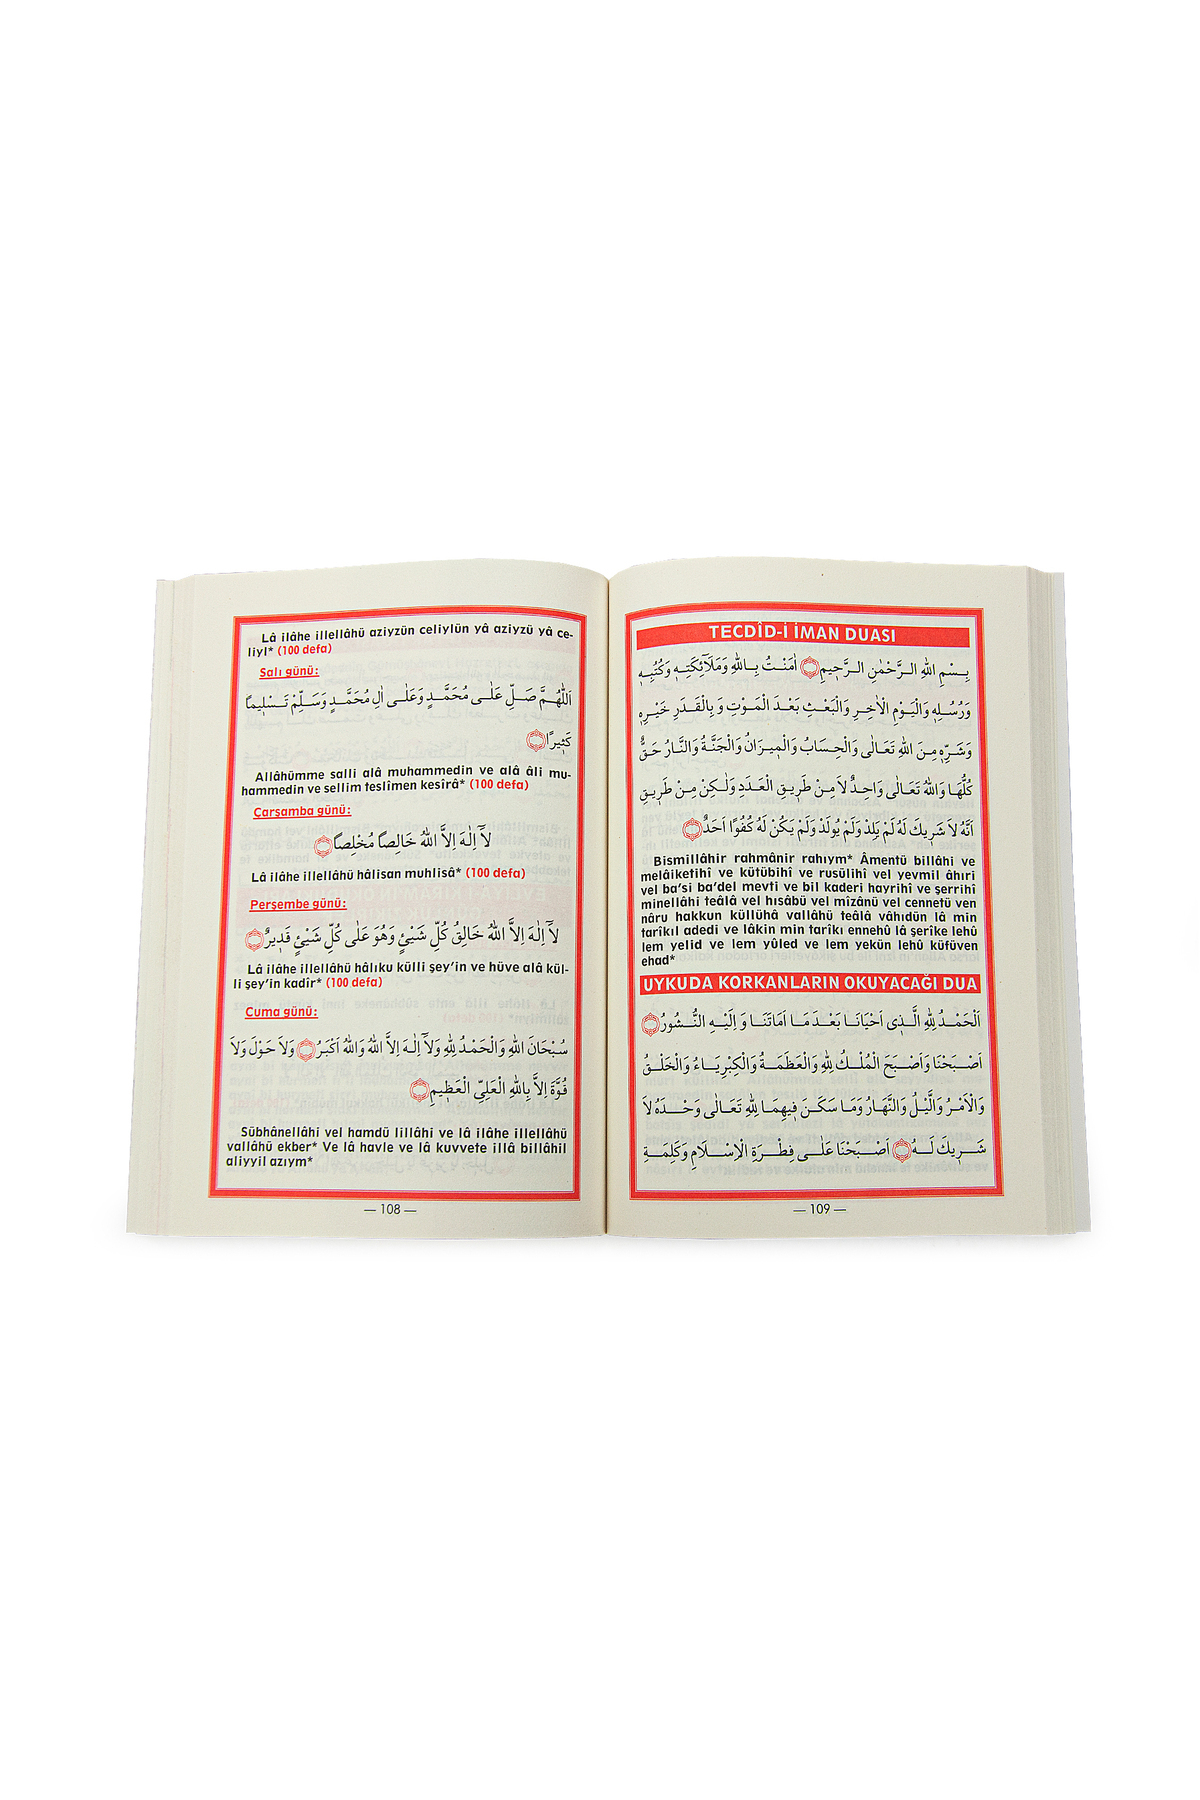 Lâ ilâhe illellâhü aziyzün celiylün yâ aziyzü yâ ce-
liyl* (100 defa)
Salı günü:
اَللّٰهُمَّ صَلِّ عَلٰى مُحَمَّدٍ وَعَلٰى اٰلِ مُحَمَّدٍ وَسَلِّمْ تَسْلِيمًا
كَثِيرًا
Allâhümme salli alâ muhammedin ve alâ âli mu-
hammedin ve sellim teslîmen kesîrâ* (100 defa)
Çarşamba günü:
لَآ اِلٰهَ اِلَّا اللّٰهُ خَالِصًا مُخْلِصًا
Lâ ilâhe illellâhü hâlisan muhlisâ* (100 defa)
Perşembe günü:
لَآ اِلٰهَ اِلَّا اللّٰهُ خَالِقُ كُلِّ شَيْئٍ وَهُوَ عَلٰى كُلِّ شَيْئٍ قَدِيرٌ
Lâ ilâhe illellâhü hâlıku külli şey'in ve hüve alâ kül-
li şey'in kadîr* (100 defa)
Cuma günü:
سُبْحَانَ اللّٰهِ وَالْحَمْدُ لِلّٰهِ وَلَآ اِلٰهَ اِلَّا اللّٰهُ وَاللّٰهُ اَكْبَرُ وَلَا حَوْلَ وَلَا
قُوَّةَ اِلَّا بِاللّٰهِ الْعَلِيِّ الْعَظِيمِ
Sübhânellâhi vel hamdü lillâhi ve lâ ilâhe illellâhü
vallâhü ekber* Ve lâ havle ve lâ kuvvete illâ billâhil
aliyyil azıym*
— 108 —
TECDÎD-İ İMAN DUASI
بِسْمِ اللّٰهِ الرَّحْمٰنِ الرَّحِيمِ اٰمَنْتُ بِاللّٰهِ وَمَلَآئِكَتِهِ وَكُتُبِهِ
وَرُسُلِهِ وَالْيَوْمِ الْاٰخِرِ وَالْبَعْثِ بَعْدَ الْمَوْتِ وَبِالْقَدَرِ خَيْرِهِ
وَشَرِّهِ مِنَ اللّٰهِ تَعَالٰى وَالْحِسَابُ وَالْمِيزَانُ وَالْجَنَّةُ وَالنَّارُ حَقٌّ
كُلُّهَا وَاللّٰهُ تَعَالٰى وَاحِدٌ لَا مِنْ طَرِيقِ الْعَدَدِ وَلٰكِنْ مِنْ طَرِيقِ
اَنَّهُ لَا شَرِيكَ لَهُ لَمْ يَلِدْ وَلَمْ يُولَدْ وَلَمْ يَكُنْ لَهُ كُفُوًا اَحَدٌ
Bismillâhir rahmânir rahıym* Âmentü billâhi ve
melâiketihî ve kütübihî ve rusülihî vel yevmil âhıri
vel ba'si ba'del mevti ve bil kaderi hayrihî ve şerrihî
minellâhi teâlâ vel hısâbü vel mîzânü vel cennetü ven
nâru hakkun küllühâ vallâhü teâlâ vâhıdün lâ min
tarîkıl adedi ve lâkin min tarîkı ennehû lâ şerîke lehû
lem yelid ve lem yûled ve lem yekün lehû küfüven
ehad*
UYKUDA KORKANLARIN OKUYACAĞI DUA
اَلْحَمْدُ لِلّٰهِ الَّذِى اَحْيَانَا بَعْدَ مَا اَمَاتَنَا وَ اِلَيْهِ النُّشُورُ
اَصْبَحْنَا وَاَصْبَحَ الْمُلْكُ لِلّٰهِ وَالْعَظَمَةُ وَالْكِبْرِيَاءُ وَالْخَلْقُ
وَالْاَمْرُ وَالَّيْلُ وَالنَّهَارُ وَمَا سَكَنَ فِيهِمَا لِلّٰهِ تَعَالٰى وَحْدَهُ لَا
شَرِيكَ لَهُ اَصْبَحْنَا عَلٰى فِطْرَةِ الْاِسْلَامِ وَكَلِمَةِ
— 109 —